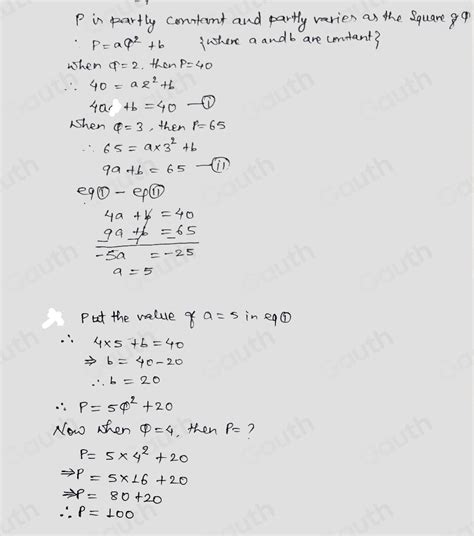 P is partly constant and partly varies as the Square of φ
∴ P=aφ²+b {where a and b are constant}
when φ=2, then P=40
∴ 40 = a2²+b
4a +b =40 —(i)
when φ=3, then P=65
∴ 65 = a×3²+b
9a+b = 65 —(ii)
eq(i) – eq(ii)
4a +b = 40
9a +b = 65
– – –
-5a = -25
a = 5
Put the value of a=5 in eq(i)
∴ 4×5+b=40
⇒ b = 40-20
∴ b = 20
∴ P=5φ²+20
Now when φ=4, then P= ?
P= 5×4²+20
⇒P= 5×16+20
⇒P= 80+20
∴ P=100
Gauth